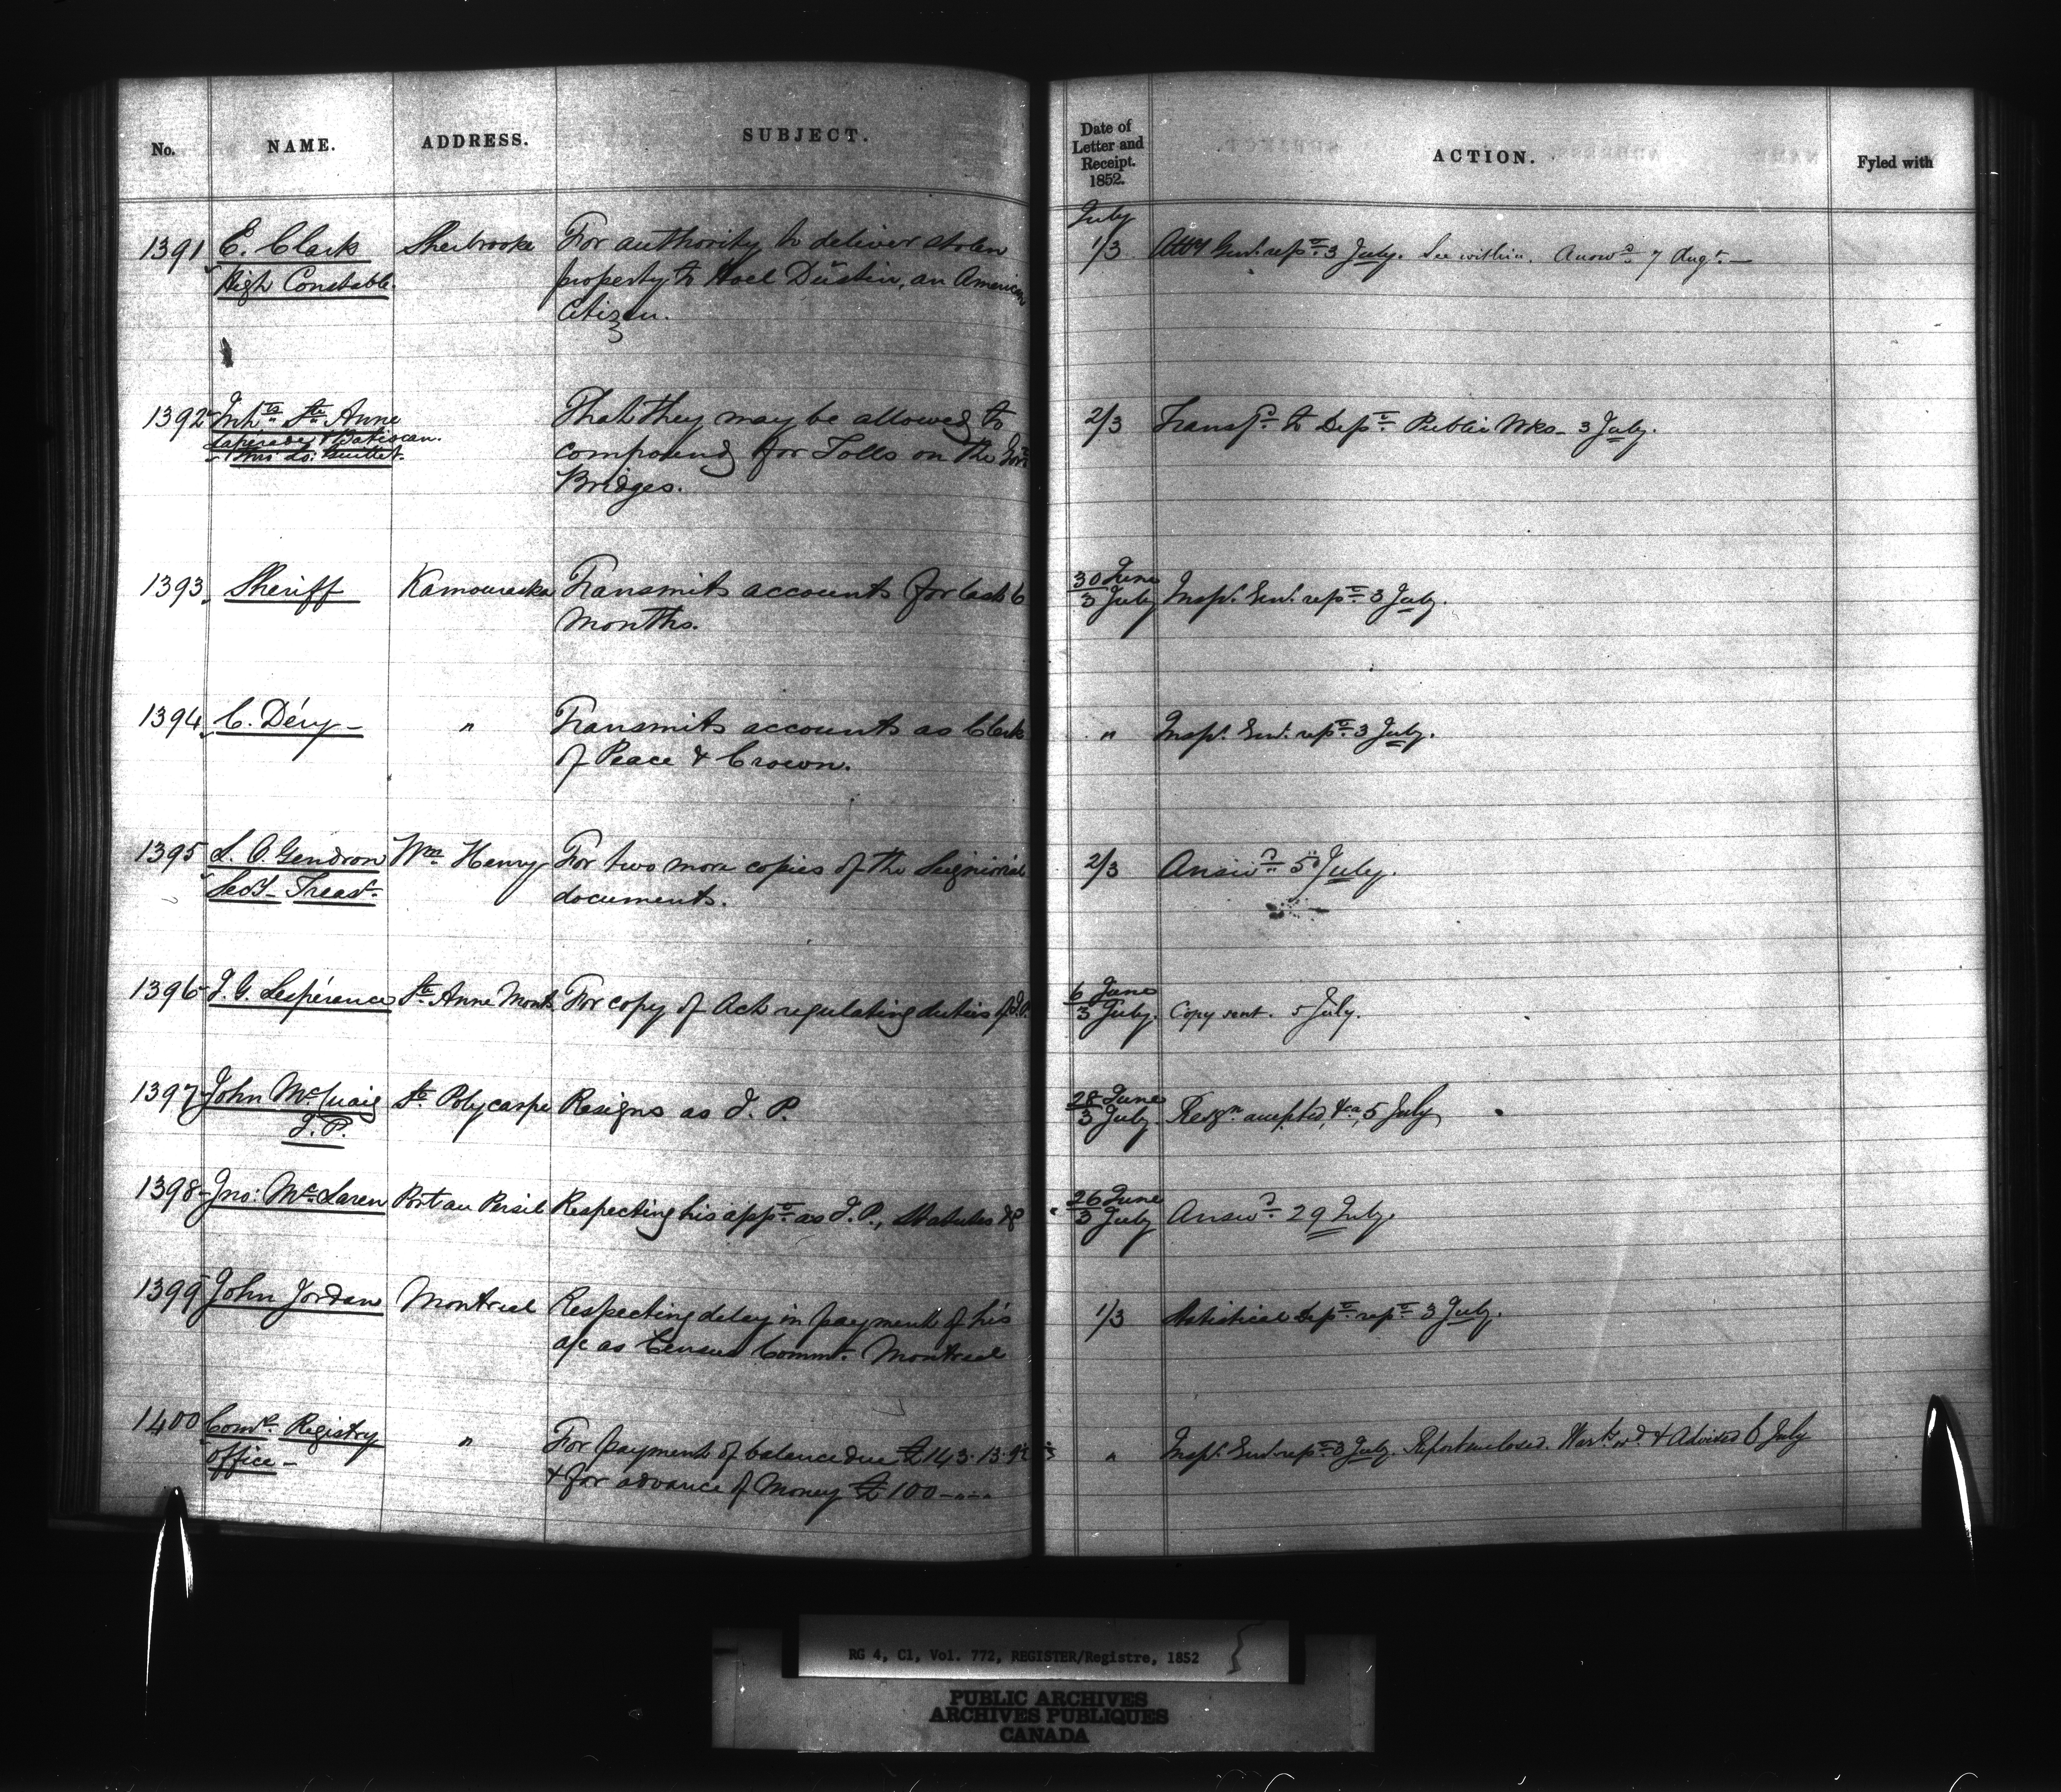 No. NAME. ADDRESS. SUBJECT. Date of Letter and Receipt. 1852. ACTION. Fyled with
July
1391 E. Clark Sherbrooke For authority to deliver stolen 1/3 Atty Genl. rept. 3 July. See within. Answd. 7 Augt. —
High Constable. property to Dustin, an American
Citizen.
1392 Inhts. Ste. Anne That they may be allowed to 2/3 Transfd. to Dept. Public Wks - 3 July.
Laperade & Batiscan. compound for Tolls on the Govt
Bridges.
1393 Sheriff Kamouraska Transmits accounts for last 6 30 June Inspr. Genl. rept. 3 July.
Months. 3 July
1394 C. Déry - " Transmits accounts as Clerk " Inspr. Genl. rept. 3 July.
of Peace & Crown.
1395 L. O. Gendron Wm. Henry For two more copies of the Seigniorial 2/3 Answd. 5 July.
Secy - Treasr. documents.
1396 J. G. Lespérance Ste. Anne Monts For copy of Act regulating duties of J.P. 6 June
3 July. Copy sent. 5 July.
1397 John McCuaig St. Polycarpe Resigns as J. P. 28 June
J.P. 3 July. Resgn. accepted, &ca, 5 July
1398 Jno: McLaren Port au Persil Respecting his appt. as J.P., Statutes &c 26 June
3 July Answd. 29 July.
1399 John Jordan Montreal Respecting delay in payment of his 1/3 Statistical Dept. rept. 3 July.
a/c as Census Commr. Montreal
1400 Comrs. Registry " For payment of balance due £143.13. " Inspr. Genl. rept. 3 July. Report enclosed. Wart. & Advised 6 July
Office - & for advance of Money £100 - " - "
RG 4, C1, Vol. 772, REGISTER/Registre, 1852
PUBLIC ARCHIVES
ARCHIVES PUBLIQUES
CANADA